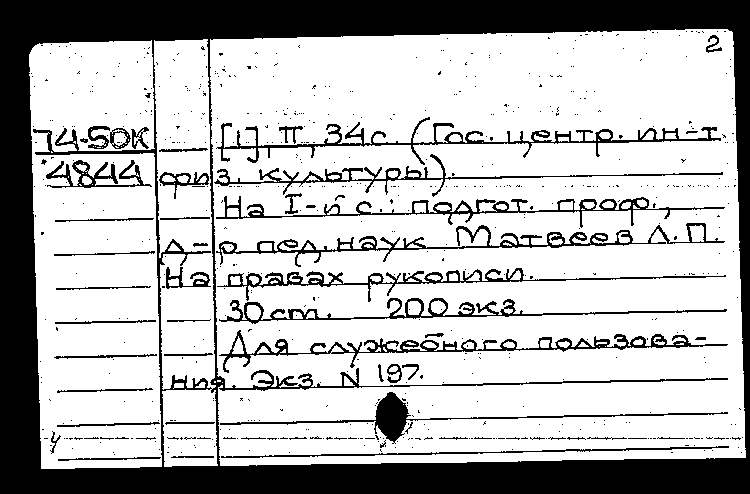 2
74-50К [1], II, 34с. (Гос. центр. ин-т
4844 физ. культуры).
На I-й с.: подгот. проф.,
д-р пед. наук Матвеев Л. П.
На правах рукописи.
30 ст. 200 экз.
Для служебного пользова-
ния. Экз. N 197.